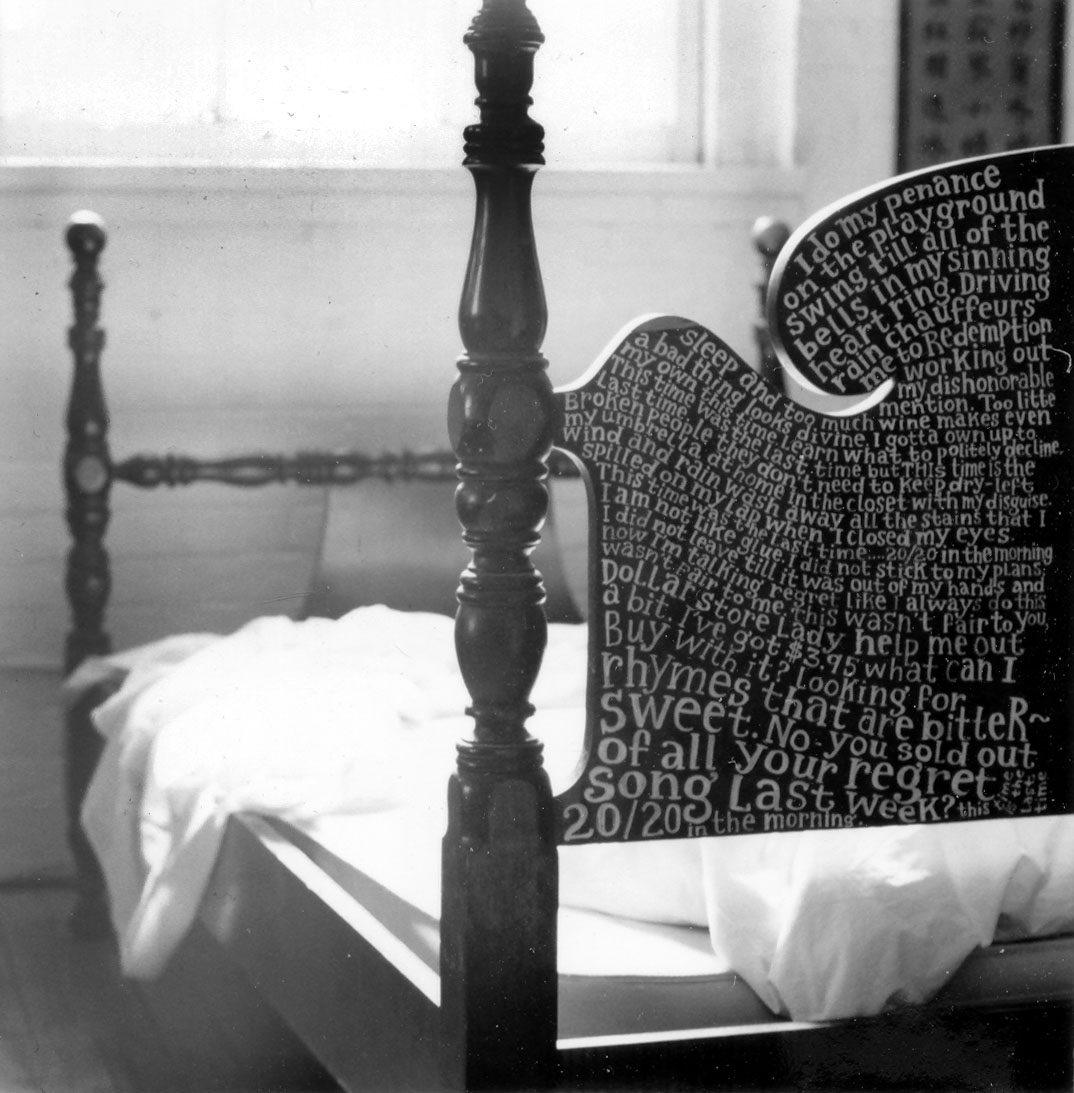 I do my penance
on the playground
swing till all of the
bells in my sinning
heart ring. Driving
rain chauffeurs
me to Redemption
working out
my dishonorable
mention. Too litte
sleep and too much wine makes even
a bad thing looks divine. I gotta own up to
my own this time learn what to politely decline.
This time was the last time but THIS time is the
last time.
Broken People they don't need to keep dry-left
my umbrella at home in the closet with my disguise.
wind and rain wash away all the stains that I
spilled on my lap when I closed my eyes.
This time was the last time....20/20 in the morning
I am not like glue I did not stick to my plans;
I did not leave till it was out of my hands and
now I'm talking regret like I always do this
wasn't fair to me this wasn't fair to you,
Dollar store Lady help me out
a bit. I've got $3.95 what can I
Buy with it? Looking for
rhymes that are bitteR~
sweet. No-you sold out
of all your regret
song Last week? this time is the last time
20/20 in the morning...